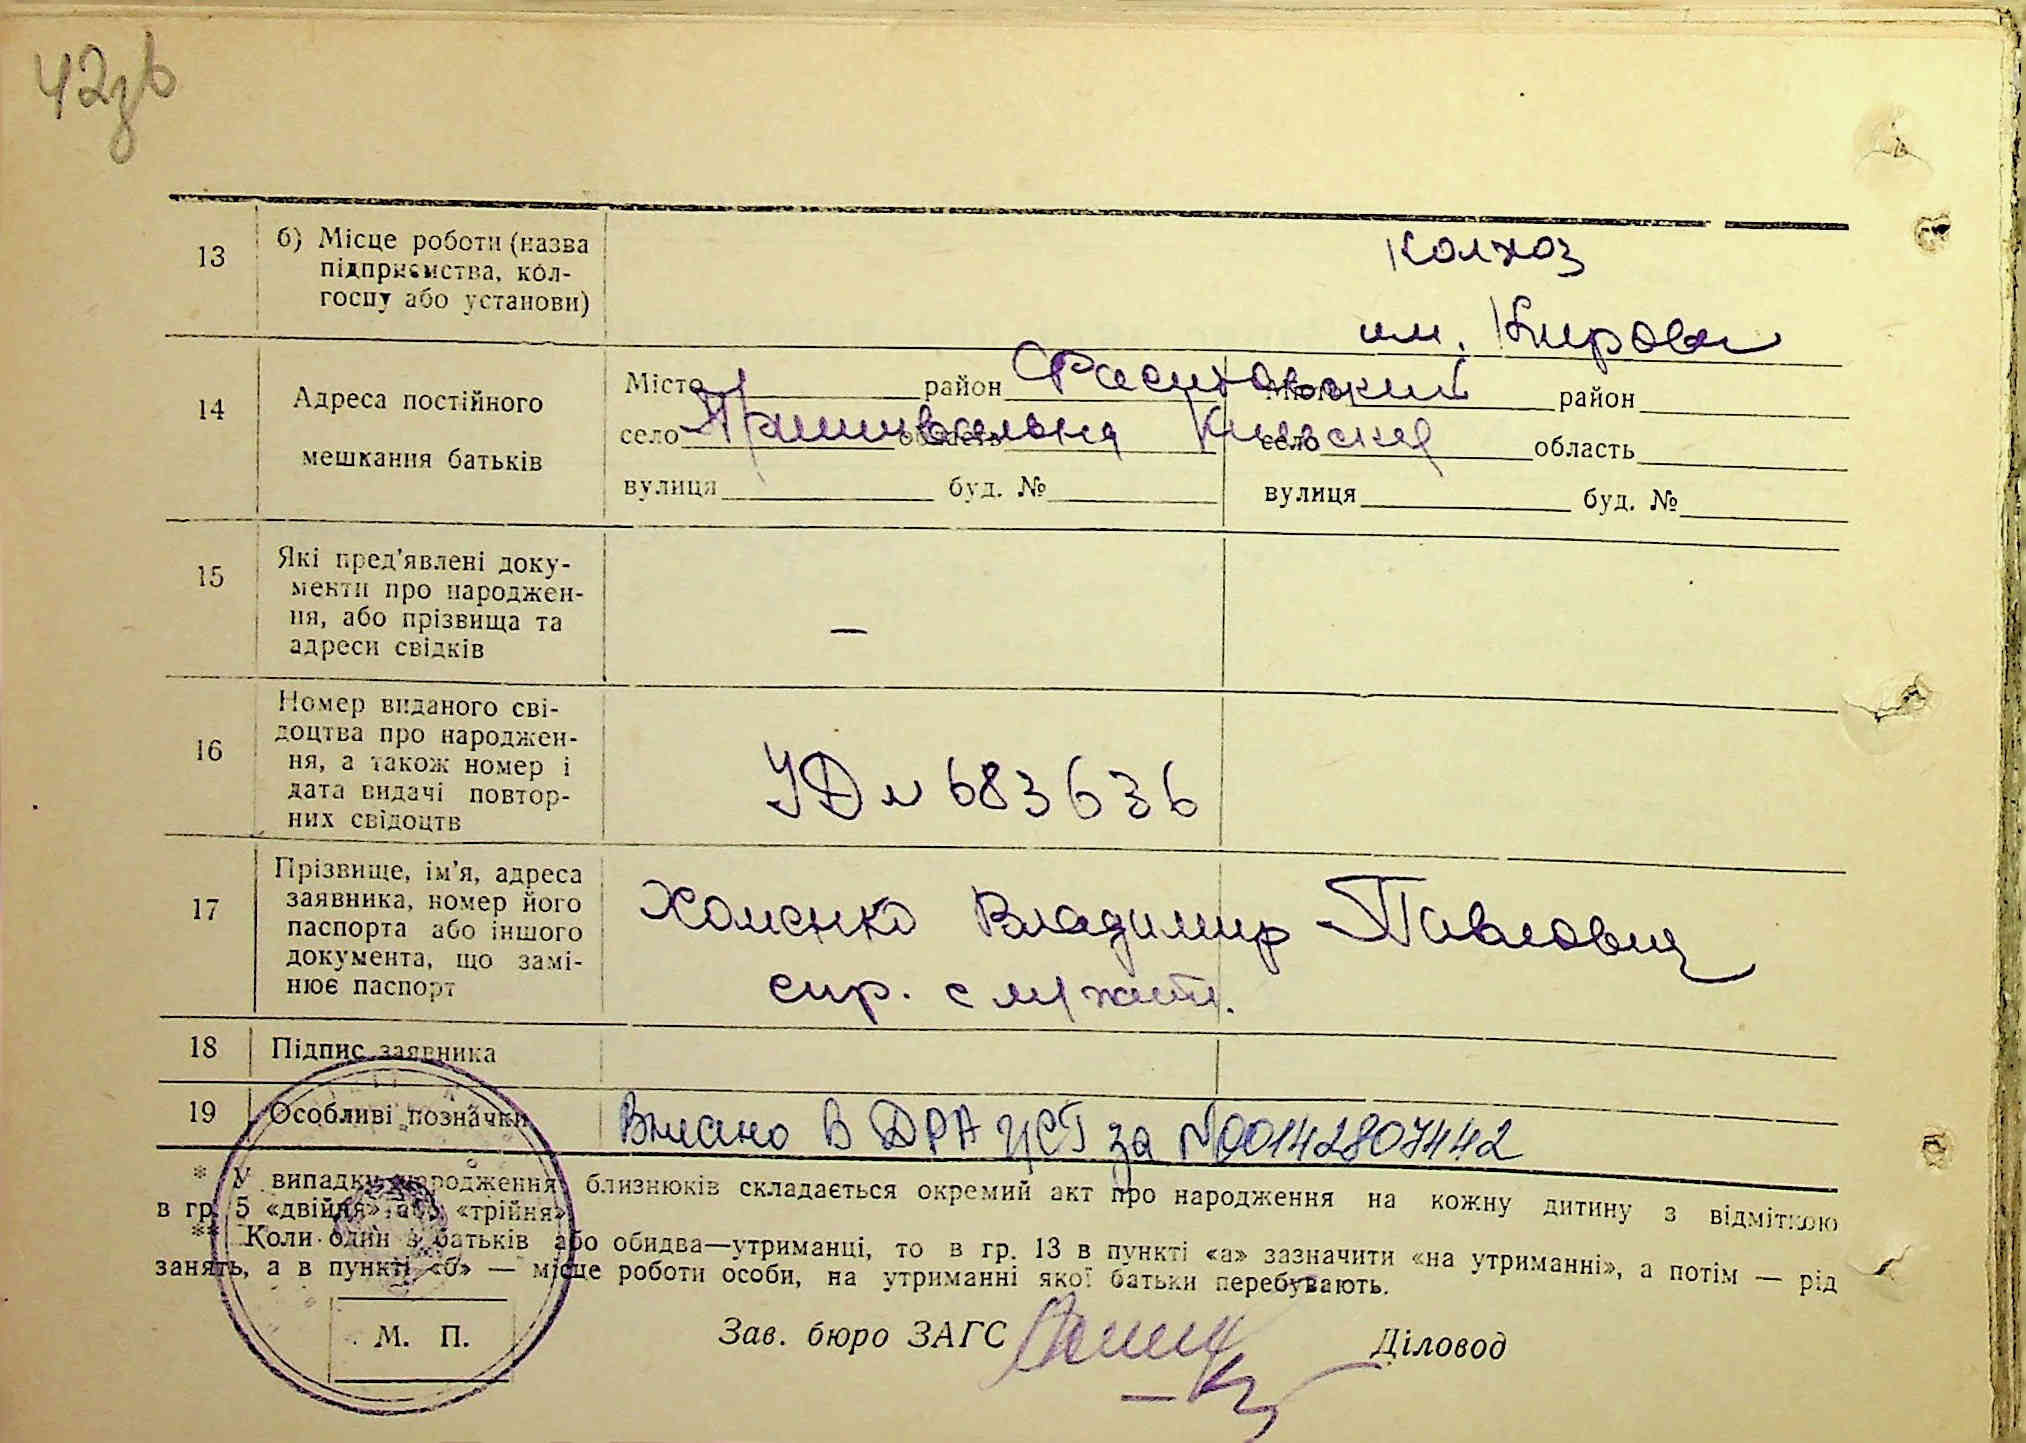 42зв
13 б) Місце роботи (назва
підприємства, кол-
госпу або установи)
колхоз
им. Кирова
14 Адреса постійного
мешкання батьків
Місто район Фастовский Місто район
село область Киевская село область
вулиця буд. № вулиця буд. №
15 Які пред'явлені доку-
менти про народжен-
ня, або прізвища та
адреси свідків
—
16 Номер виданого сві-
доцтва про народжен-
ня, а також номер і
дата видачі повтор-
них свідоцтв
УД № 683636
17 Прізвище, ім'я, адреса
заявника, номер його
паспорта або іншого
документа, що замі-
нює паспорт
Хоменко Владимир Павлович
18 Підпис заявника
19 Особливі позначки Внесено в ДРАЦСГ за №00142807442
* У випадку народження близнюків складається окремий акт про народження на кожну дитину з відміткою
в гр. 5 «двійня» або «трійня»
** Коли один з батьків або обидва—утриманці, то в гр. 13 в пункті «а» зазначити «на утриманні», а потім — рід
занять, а в пункті «б» — місце роботи особи, на утриманні якої батьки перебувають.
М. П. Зав. бюро ЗАГС Діловод